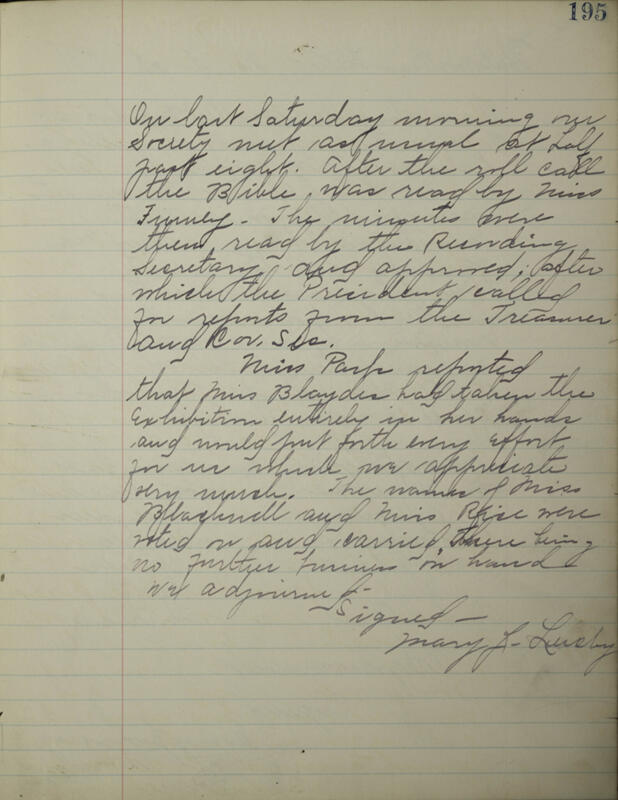 195
On last Saturday morning our
Society met as usual at half
past eight. After the roll call
the Bible was read by Miss
Finney. The minutes were
then read by the Recording
Secretary and approved; after
which the President called
for reports from the Treasurer
and Cor. Sec.
Miss Park reported
that Miss Blaydes had taken the
Exhibition entirely in her hands
and would put forth every effort
for us which we appreciate
very much. The names of Miss
Blackwell and Miss Rice were
voted on and carried, there being
no further business on hand
we adjourned-
Signed-
Mary J. Lusby